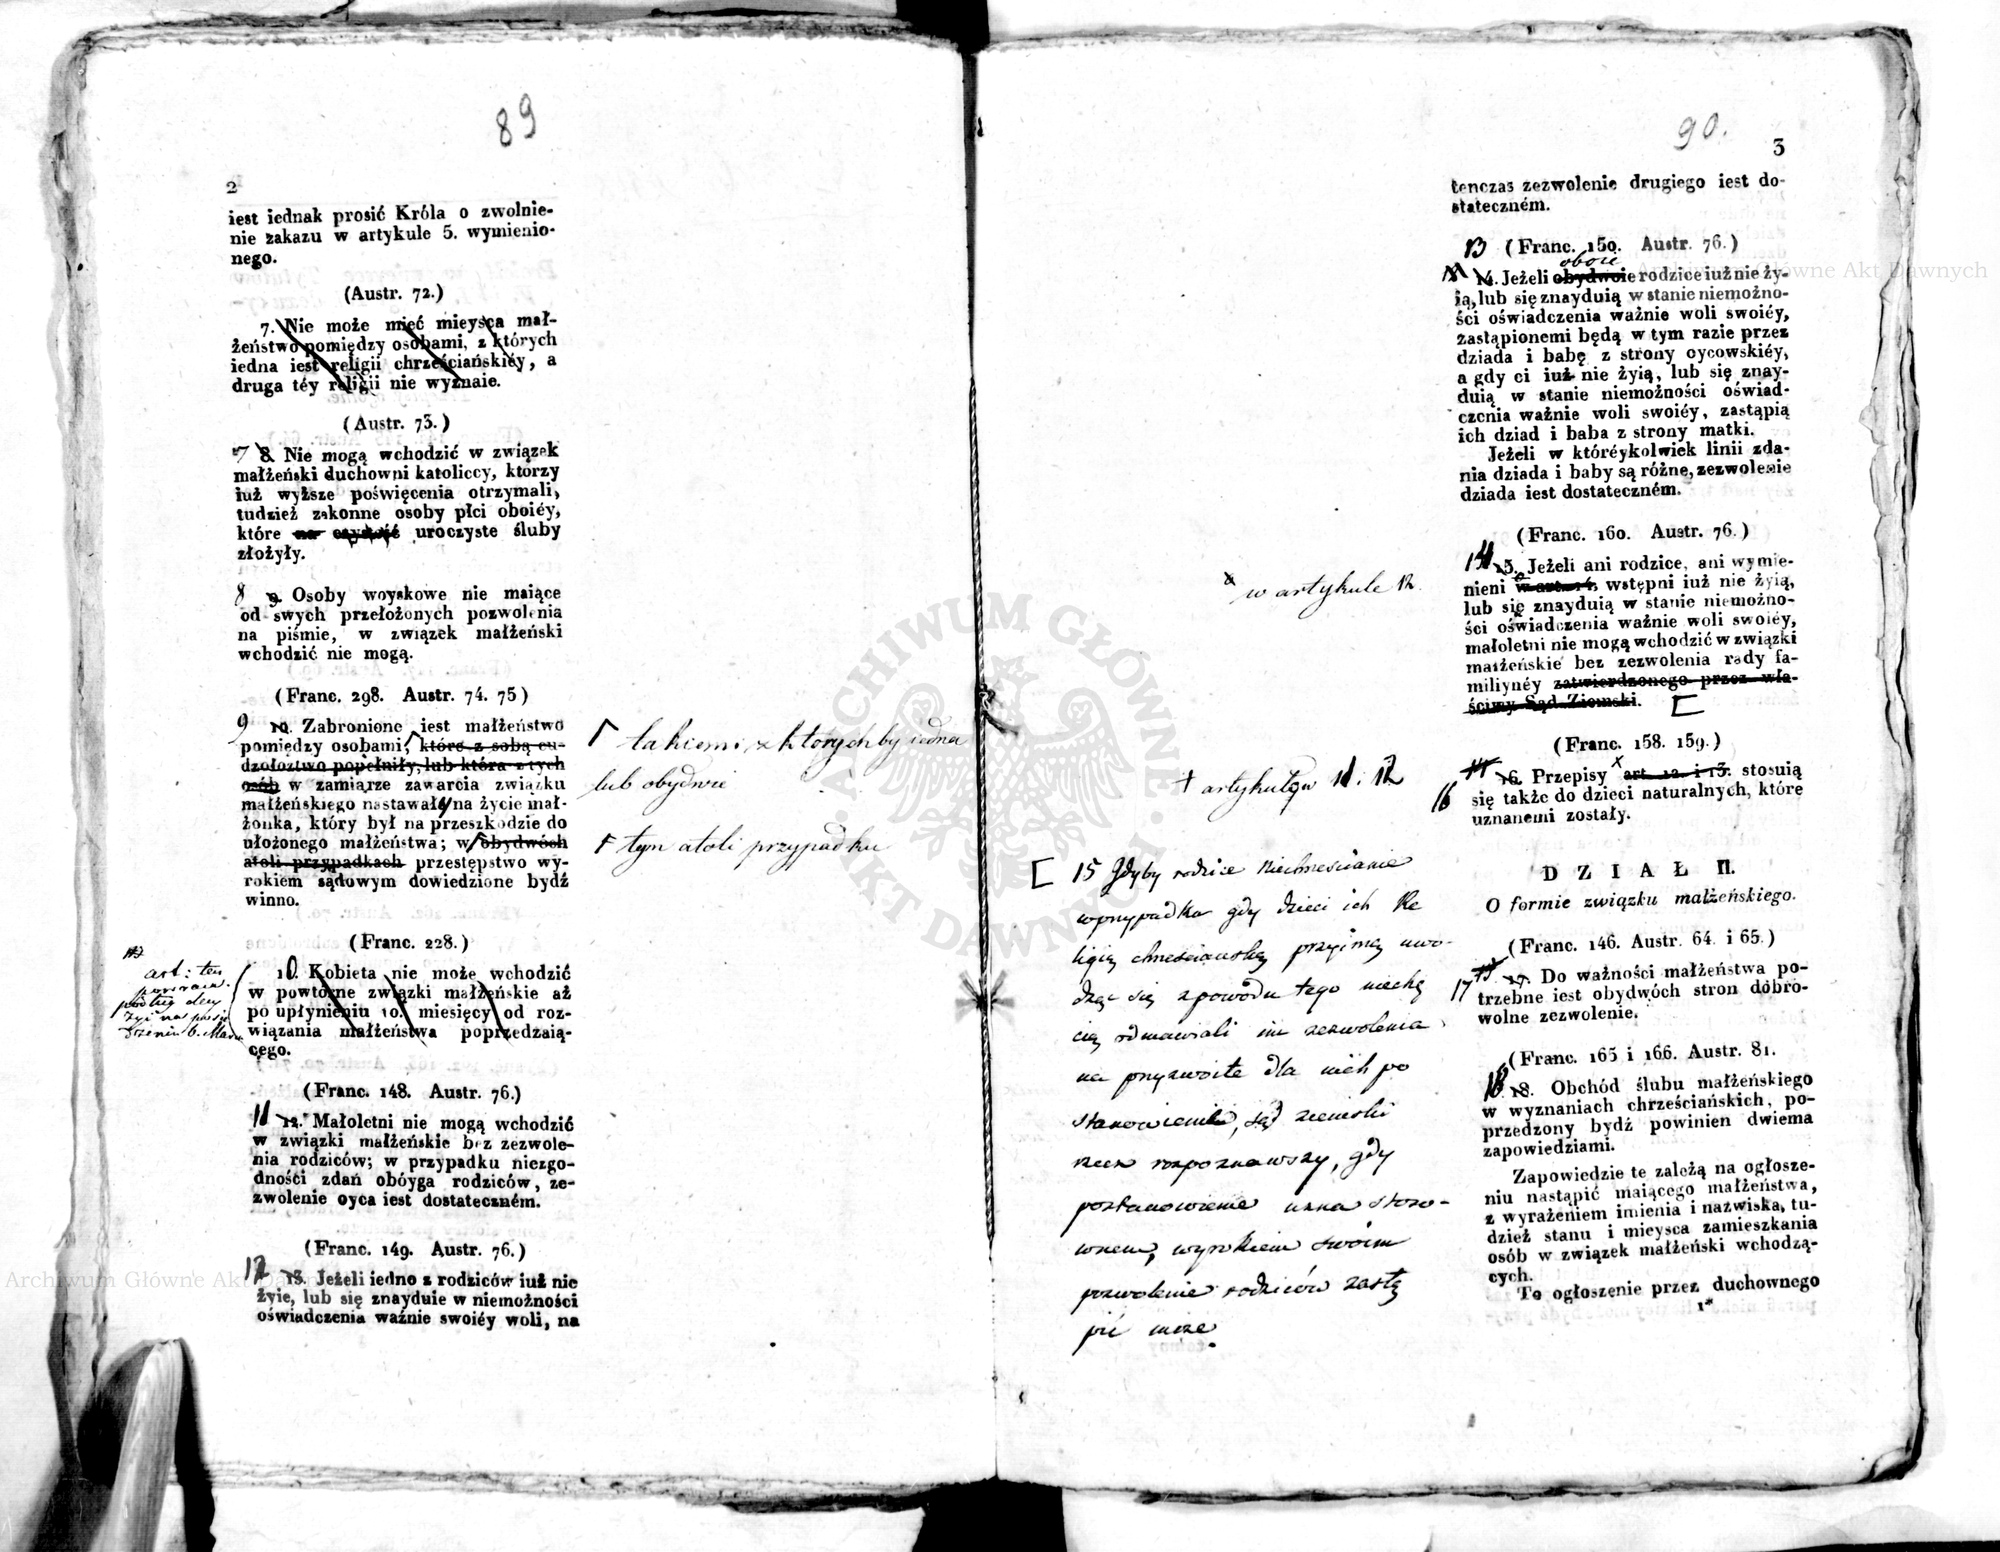 89
2
iest iednak prosić Króla o zwolnie-
nie zakazu w artykule 5. wymienio-
nego.
(Austr. 72.)
7. Nie może mieć mieysca mał-
żeństwo pomiędzy osobami, z których
iedna iest religii chrześciańskiéy, a
druga téy religii nie wyznaie.
(Austr. 73.)
7 8. Nie mogą wchodzić w związek
małżeński duchowni katoliccy, którzy
iuż wyższe poświęcenia otrzymali,
tudzież zakonne osoby płci oboiéy,
które na czystość uroczyste śluby
złożyły.
8 9. Osoby woyskowe nie maiące
od swych przełożonych pozwolenia
na piśmie, w związek małżeński
wchodzić nie mogą.
(Franc. 298. Austr. 74. 75)
9 10. Zabronione iest małżeństwo
pomiędzy osobami, które z sobą cu-
dzołoztwo popełniły, lub która z tych
osób w zamiarze zawarcia związku
małżeńskiego nastawały na życie mał-
żonka, który był na przeszkodzie do
ułożonego małżeństwa; w obydwóch
atoli przypadkach przestępstwo wy-
rokiem sądowym dowiedzione bydź
winno.
takiemi z których by iedna
lub obydwie
tym atoli przypadku
(Franc. 228.)
10. Kobieta nie może wchodzić
w powtórne związki małżeńskie aż
po upłynieniu 10. miesięcy od roz-
wiązania małżeństwa poprzedzaią-
cego.
art: ten
(Franc. 148. Austr. 76.)
11 12. Małoletni nie mogą wchodzić
w związki małżeńskie bez zezwole-
nia rodziców; w przypadku niezgo-
dności zdań obóyga rodziców, ze-
zwolenie oyca iest dostateczném.
(Franc. 149. Austr. 76.)
12 13. Jeżeli iedno z rodziców iuż nie
żyie, lub się znayduie w niemożności
oświadczenia ważnie swoiéy woli, na
90.
3
tenczas zezwolenie drugiego iest do-
stateczném.
13 (Franc. 150. Austr. 76.)
oboie
14. Jeżeli obydwoie rodzice iuż nie ży-
ią, lub się znayduią w stanie niemożno-
ści oświadczenia ważnie woli swoiéy,
zastąpionemi będą w tym razie przez
dziada i babę z strony oycowskiéy,
a gdy ci iuż nie żyią, lub się znay-
duią w stanie niemożności oświad-
czenia ważnie woli swoiéy, zastąpią
ich dziad i baba z strony matki.
Jeżeli w któréykolwiek linii zda-
nia dziada i baby są różne, zezwolenie
dziada iest dostateczném.
(Franc. 160. Austr. 76.)
14 15. Jeżeli ani rodzice, ani wymie-
nieni w art. 14. wstępni iuż nie żyią,
lub się znayduią w stanie niemożno-
ści oświadczenia ważnie woli swoiéy,
małoletni nie mogą wchodzić w związki
małżeńskie bez zezwolenia rady fa-
miliynéy zatwierdzonego przez wła-
ściwy Sąd Ziemski.
w artykule 12.
(Franc. 158. 159.)
16 16. Przepisy art. 12. i 13. stosuią
się także do dzieci naturalnych, które
uznanemi zostały.
+ artykułów 11. 12
[ 15 Gdyby rodzice Niechrześcianie
w przypadku gdy dzieci ich Re
ligią chrześciańską przyimą uwo-
dząc się z powodu tego niechę
cią odmawiali im zezwolenia
na przyzwoite dla nich po
stanowienie, sąd ziemski
rzecz rozpoznawszy, gdy
postanowienie uzna stoso-
wnem, wyrokiem swoim
pozwolenie rodziców zastą
pić może.
DZIAŁ II.
O formie związku małżeńskiego.
(Franc. 146. Austr. 64. i 65.)
17 17. Do ważności małżeństwa po-
trzebne iest obydwóch stron dobro-
wolne zezwolenie.
(Franc. 165 i 166. Austr. 81.
18 18. Obchód ślubu małżeńskiego
w wyznaniach chrześciańskich, po-
przedzony bydź powinien dwiema
zapowiedziami.
Zapowiedzie te zależą na ogłosze-
niu nastąpić maiącego małżeństwa,
z wyrażeniem imienia i nazwiska, tu-
dzież stanu i mieysca zamieszkania
osób w związek małżeński wchodzą-
cych.
To ogłoszenie przez duchownego
1*
ARCHIWUM GŁÓWNE AKT DAWNYCH
Archiwum Główne Akt Dawnych